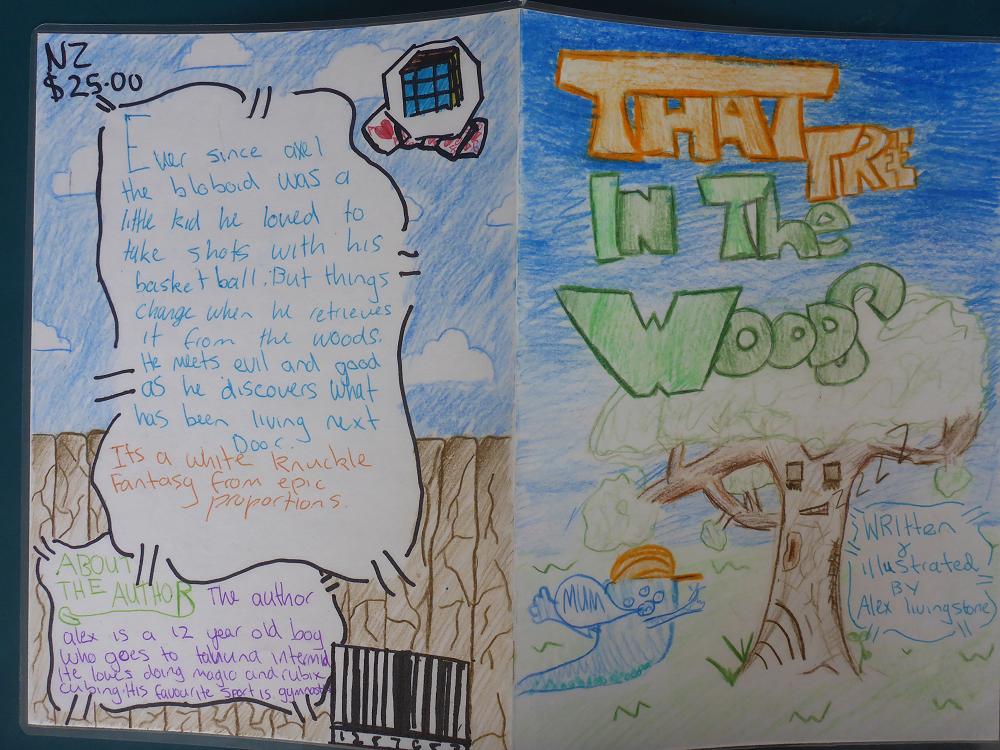 NZ
$25.00
Ever since axel
the bloboid was a
little kid he loved to
take shots with his
basketball. But things
change when he retrieves
it from the woods.
He meets evil and good
as he discovers what
has been living next
Door.
Its a white knuckle
Fantasy from epic
proportions.
ABOUT
THE AUTHOR The author
alex is a 12 year old boy
who goes to tahuna intermid
He loves doing magic and rubix
cubing. His favourite sport is gymnast
THAT
TREE
IN The
WOODS
MUM
WRItten
&
illustrated
BY
Alex livingstone